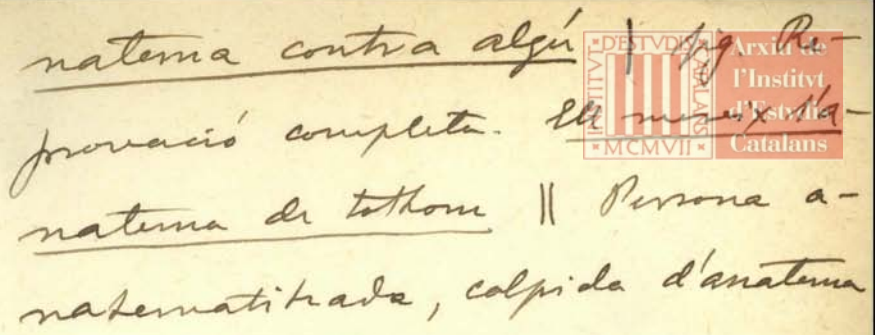 natema contra algú | fig. Re-
provació completa. Ell mereix l'a-
natema de tothom || Persona a-
natematitzada, colpida d'anatema
D'ESTVDIS
INSTITVT
CATALANS
MCMVII
Arxiu de
l'Institvt
d'Estudis
Catalans